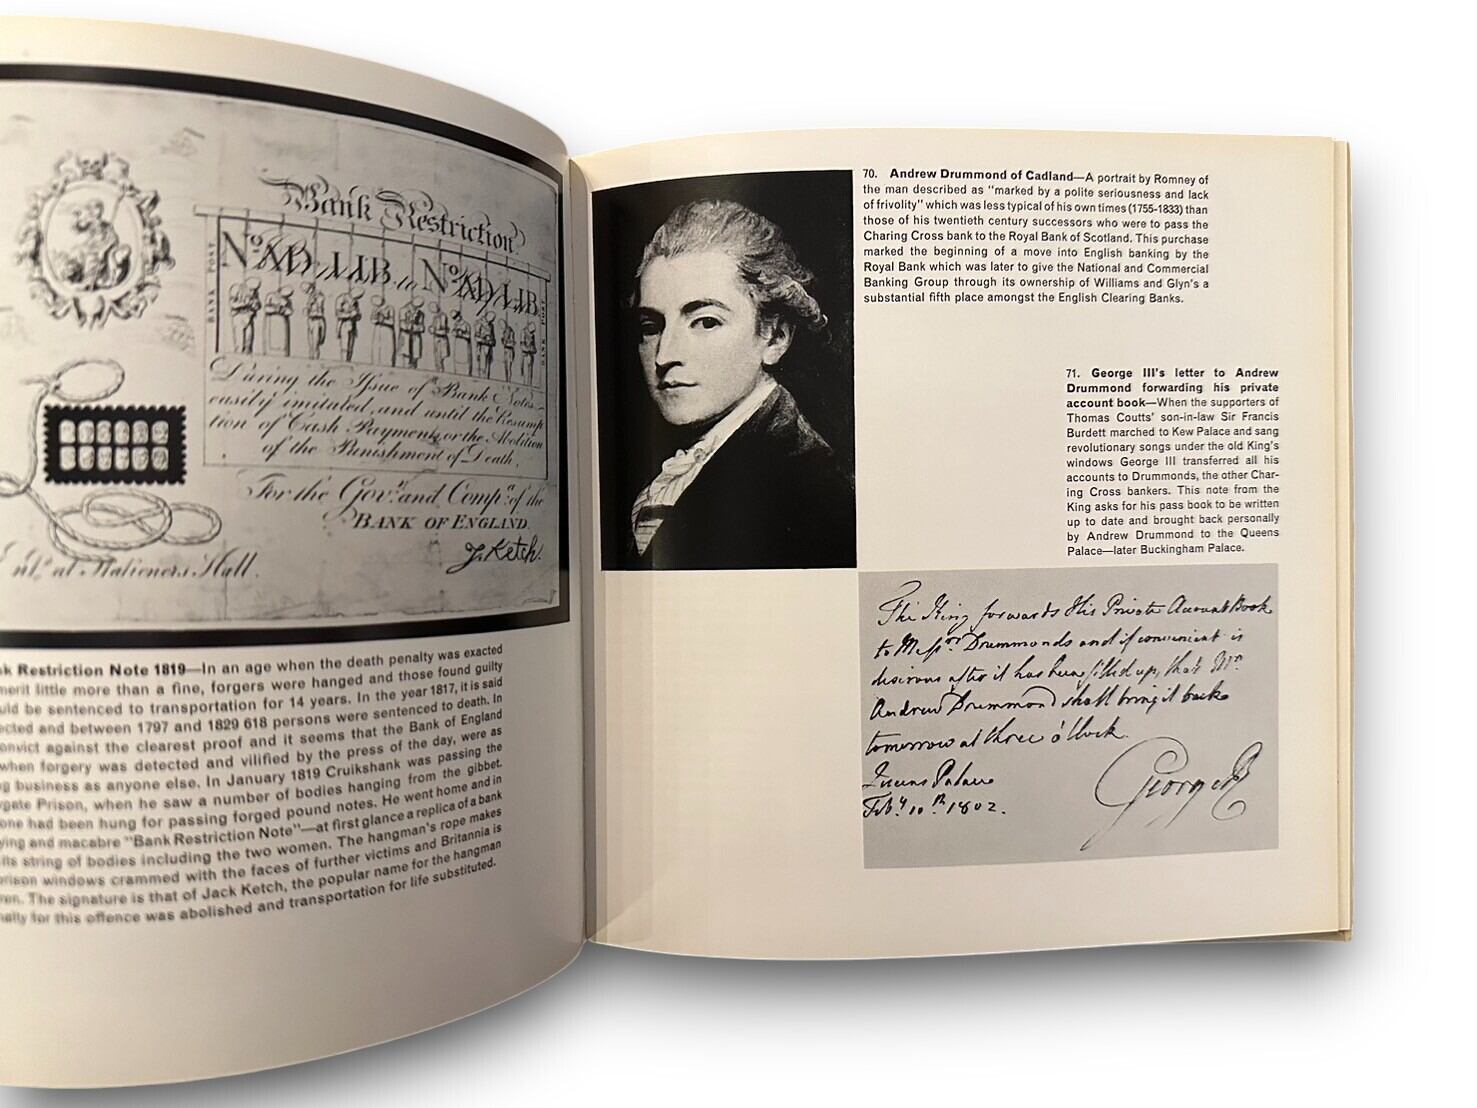 Bank Restriction
No. AD. LIB. to No. AD. LIB.
BANK POST
BANK POST
During the Issue of Bank Notes
easily imitated, and until the Resump
tion of Cash Payments, or the Abolition
of the Punishment of Death,
For the Govr. and Compa. of the
BANK OF ENGLAND.
J. Ketch.
at Stationers Hall.
Restriction Note 1819—In an age when the death penalty was exacted
merit little more than a fine, forgers were hanged and those found guilty
be sentenced to transportation for 14 years. In the year 1817, it is said
and between 1797 and 1829 618 persons were sentenced to death. In
against the clearest proof and it seems that the Bank of England
when forgery was detected and vilified by the press of the day, were as
business as anyone else. In January 1819 Cruikshank was passing the
Prison, when he saw a number of bodies hanging from the gibbet.
one had been hung for passing forged pound notes. He went home and in
and macabre "Bank Restriction Note"—at first glance a replica of a bank
its string of bodies including the two women. The hangman's rope makes
prison windows crammed with the faces of further victims and Britannia is
The signature is that of Jack Ketch, the popular name for the hangman
for this offence was abolished and transportation for life substituted.
70. Andrew Drummond of Cadland—A portrait by Romney of
the man described as "marked by a polite seriousness and lack
of frivolity" which was less typical of his own times (1755-1833) than
those of his twentieth century successors who were to pass the
Charing Cross bank to the Royal Bank of Scotland. This purchase
marked the beginning of a move into English banking by the
Royal Bank which was later to give the National and Commercial
Banking Group through its ownership of Williams and Glyn's a
substantial fifth place amongst the English Clearing Banks.
71. George III's letter to Andrew
Drummond forwarding his private
account book—When the supporters of
Thomas Coutts' son-in-law Sir Francis
Burdett marched to Kew Palace and sang
revolutionary songs under the old King's
windows George III transferred all his
accounts to Drummonds, the other Char-
ing Cross bankers. This note from the
King asks for his pass book to be written
up to date and brought back personally
by Andrew Drummond to the Queens
Palace—later Buckingham Palace.
The King forwards His Private Account Book
to Messrs. Drummonds and if convenient is
desirous after it has been filled up, that Mr.
Andrew Drummond shall bring it back
tomorrow at three o'clock.
Queens Palace
Feby. 10th. 1802.
George R